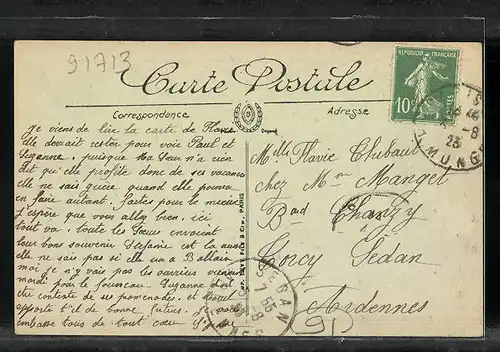 91713
Carte Postale
Correspondance
Adresse
RÉPUBLIQUE FRANÇAISE
10c
POSTES
Je viens de lire la carte de Flavie
elle devait rester pour voir Paul et
Suzanne, puisque ma Sœur n'a rien
dit qu'elle profite donc de ses vacances
elle ne sais guère quand elle pourra
en faire autant. faites pour le mieux
J'espère que vous allez bien, ici
tout va, toute les Sœurs envoient
leur bons souvenir Stefanie est là aussi
elle ne sais pas si elle ira à Ballan
moi je n'y vais pas les
mardi pour le fourneau Suzanne doit
être contente de ses promenades, et Marcel
apporte t'il de bonne Je vous
embrasse tous de tout cœur
Melle Flavie Thibaut
chez Mr Manget
Bard Chanzy
Torcy Sedan
Ardennes
(91)
SEDAN